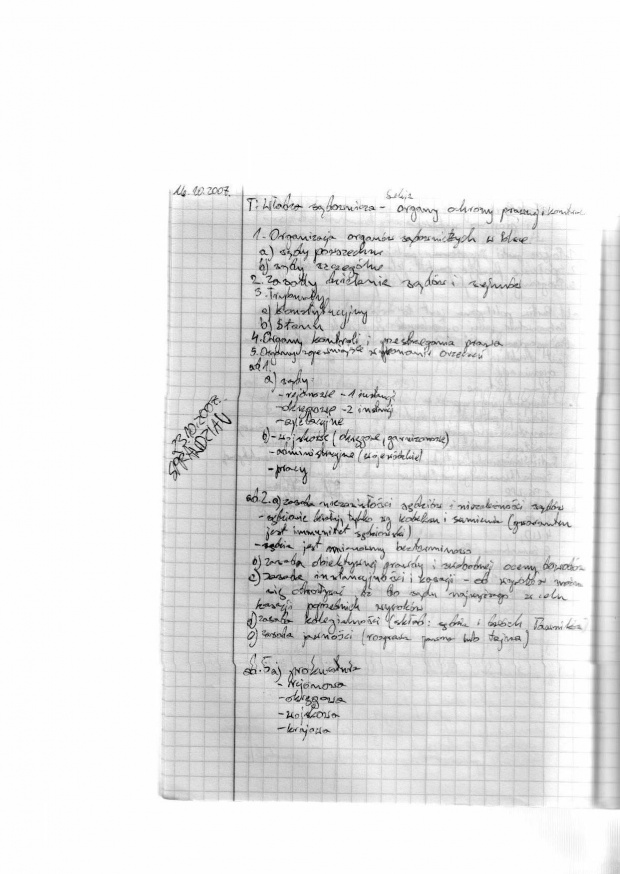 16.10.2007.
Lekcja
T: Władza sądownicza - organy ochrony prawnej i kontroli
1. Organizacja organów sądowniczych w Polsce
a) sądy powszechne
b) sądy szczególne
2. Zasady działania sądów i sędziów
3. Trybunały
a) Konstytucyjny
b) Stanu
4. Organy kontroli i przestrzegania prawa
5. Organy zapewniające wykonanie orzeczeń
ad.1.
a) sądy:
- rejonowe - 1 instancji
- okręgowe - 2 instancji
- apelacyjne
b) - wojskowe (okręgowe, garnizonowe)
- administracyjne (wojewódzkie)
- pracy
23.10.2007r.
SPRAWDZIAN
ad.2. a) zasada niezawisłości sędziów i niezależności sądów
- sędziowie kierują tylko się kodeksem i sumienia (gwarantem
jest immunitet sędziowski)
- sędzia jest mianowany bezterminowo
b) zasada obiektywnej prawdy i swobodnej oceny dowodów
c) zasada instancyjności i kasacji - od wyroków można
się odwoływać aż do sądu najwyższego w celu
kasacji poprzednich wyroków
d) zasada kolegialności (skład: sędzia i dwóch ławników)
e) zasada jawności (rozprawa jawna lub tajna)
ad.5 a) prokuratura
- rejonowa
- okręgowa
- wojskowa
- krajowa